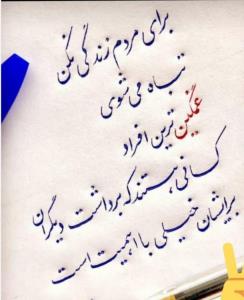 برای مردم زندگی نکن
تباه می شوی
غمگین ترین افراد
کسانی هستند که برداشت دیگران
برایشان خیلی با اهمیت است